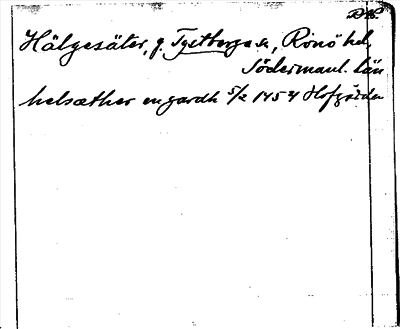 DK.
Hälgesäter, g. Tystberga sn, Rönö hd,
Södermanl. län
helsæther en gardh 5/2 1454 Hofgården